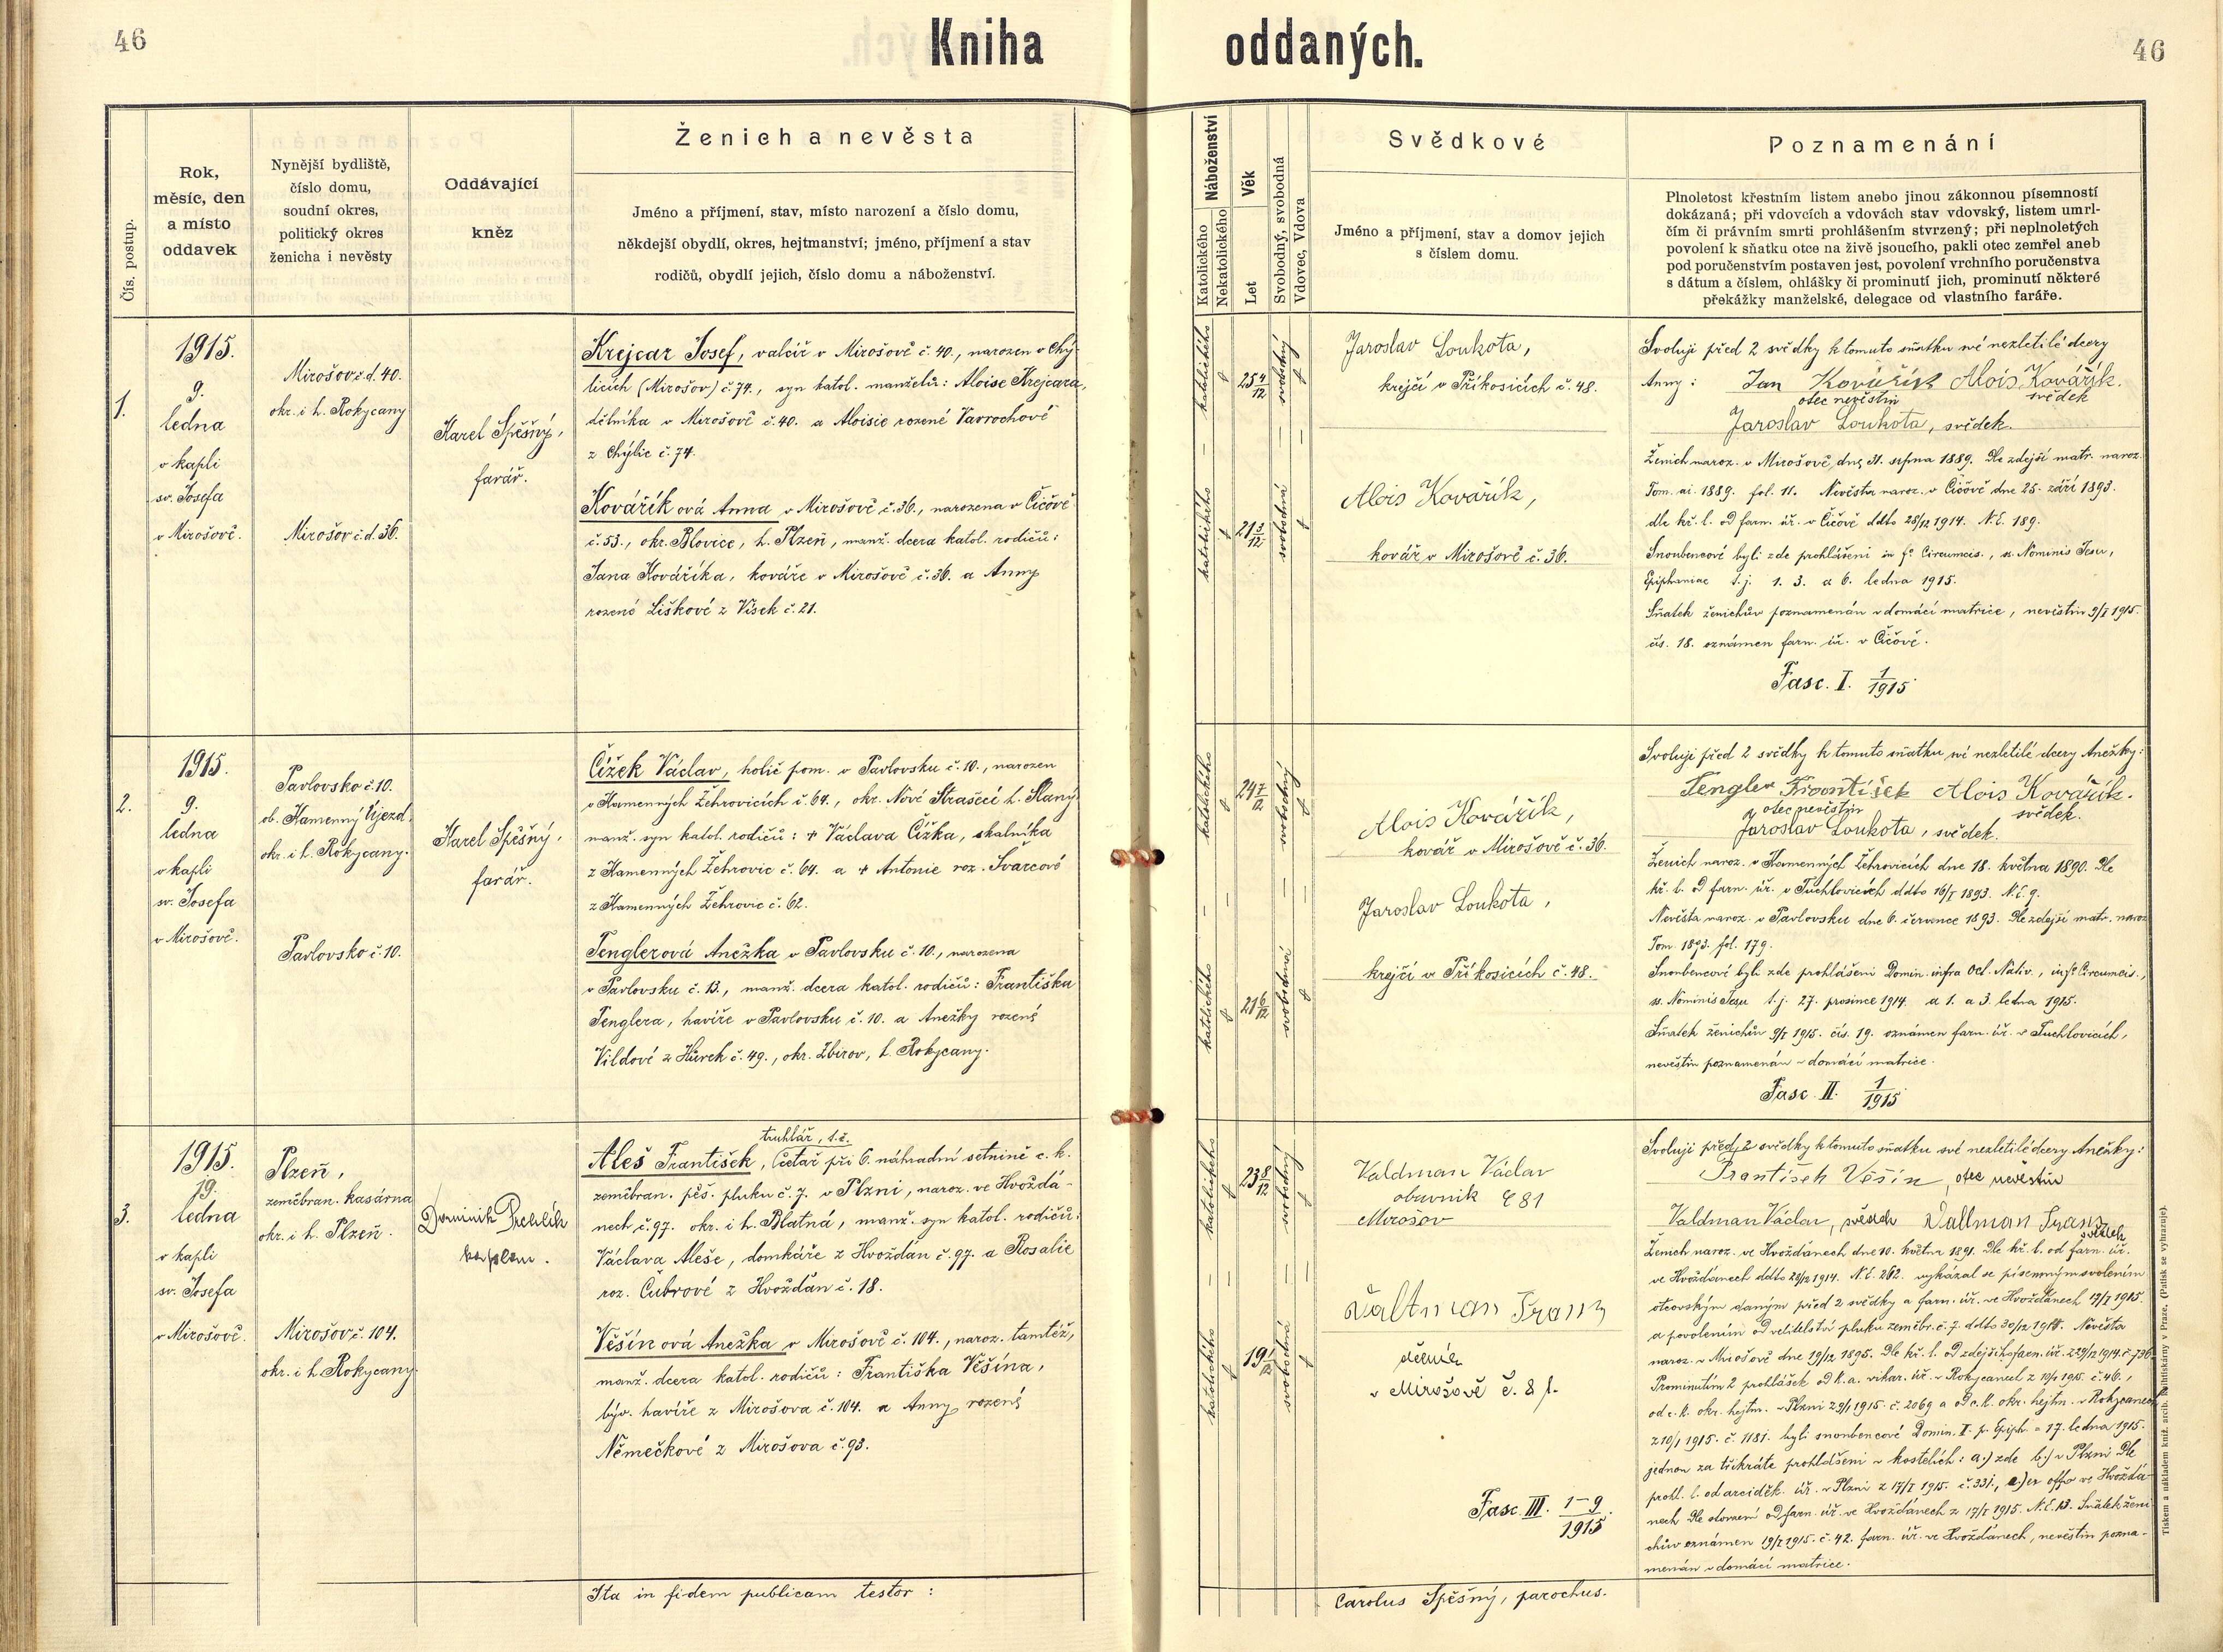 46
Kniha oddaných.
46
Čís. postup.
Rok,
měsíc, den
a místo
oddavek
Nynější bydliště,
číslo domu,
soudní okres,
politický okres
ženicha i nevěsty
Oddávající
kněz
Ženich a nevěsta
Jméno a příjmení, stav, místo narození a číslo domu,
někdejší obydlí, okres, hejtmanství; jméno, příjmení a stav
rodičů, obydlí jejich, číslo domu a náboženství.
Náboženství
Katolického
Nekatolického
Věk
Let
Svobodný, svobodná
Vdovec, Vdova
Svědkové
Jméno a příjmení, stav a domov jejich
s číslem domu.
Poznamenání
Plnoletost křestním listem anebo jinou zákonnou písemností
dokázaná; při vdovcích a vdovách stav vdovský, listem umrl-
čím či právním smrti prohlášením stvrzený; při neplnoletých
povolení k sňatku otce na živě jsoucího, pakli otec zemřel aneb
pod poručenstvím postaven jest, povolení vrchního poručenstva
s dátum a číslem, ohlášky či prominutí jich, prominutí některé
překážky manželské, delegace od vlastního faráře.
1.
1915.
9.
ledna
v kapli
sv. Josefa
v Mirošově.
Mirošov č.d. 40.
okr. i h. Rokycany
Mirošov č.d. 36.
Karel Spěšný,
farář.
Krejcar Josef, valcíř v Mirošově č. 40., narozen v Chý-
licích (Mirošov) č. 74., syn katol. manželů: Aloise Krejcara,
dělníka v Mirošově č. 40. a Aloisie rozené Vavrochové
z Chýlic č. 74.
Kovaříková Anna v Mirošově č. 36., narozena v Čičově
č. 53., okr. Blovice, h. Plzeň, manž. dcera katol. rodičů:
Jana Kováříka, kováře v Mirošově č. 36. a Anny
rozené Liškové z Vísek č. 21.
katolického
25 4/12
svobodný
katolického
21 3/12
svobodná
Jaroslav Loukota,
krejčí v Příkosicích č. 48.
Alois Kovařík,
kovář v Mirošově č. 36.
Svoluji před 2 svědky k tomuto sňatku své nezletilé dcery
Anny: Jan Kovářík Alois Kovářík.
otec nevěstin svědek
Jaroslav Loukota, svědek.
Ženich naroz. v Mirošově, dne 31. srpna 1889. Dle zdejší matr. naroz.
Tom. ai. 1889. fol. 11. Nevěsta naroz. v Čičově dne 25. září 1893.
dle kř. l. od farn. úř. v Čičově ddto 28/12 1914. N.E. 189.
Snoubencové byli zde prohlášeni in fo Circumcis., ss. Nominis Jesu,
Epiphaniae t.j. 1. 3. a 6. ledna 1915.
Sňatek ženichův poznamenán v domácí matrice, nevěstin 9/I 1915.
čís. 18. oznámen farn. úř. v Čičově.
Fasc. I. 1/1915
2.
1915.
9.
ledna
v kapli
sv. Josefa
v Mirošově.
Pavlovsko č. 10.
ob. Kamenný Újezd,
okr. i h. Rokycany.
Pavlovsko č. 10.
Karel Spěšný,
farář.
Čížek Václav, holič pom. v Pavlovsku č. 10., narozen
v Kamenných Žehrovicích č. 64., okr. Nové Strašecí h. Slaný
manž. syn katol. rodičů: + Václava Čížka, skalníka
z Kamenných Žehrovic č. 64. a + Antonie roz. Švarcové
z Kamenných Žehrovic č. 62.
Tenglerová Anežka v Pavlovsku č. 10., narozena
v Pavlovsku č. 13., manž. dcera katol. rodičů: Františka
Tenglera, havíře v Pavlovsku č. 10. a Anežky rozené
Vildové z Hůrek č. 49., okr. Zbirov, h. Rokycany.
katolického
24 7/12
svobodný
katolického
21 6/12
svobodná
Alois Kovářík,
kovář v Mirošově č. 36.
Jaroslav Loukota,
krejčí v Příkosicích č. 48.
Svoluji před 2 svědky k tomuto sňatku své nezletilé dcery Anežky:
Tengler František Alois Kovářík.
otec nevěstin svědek.
Jaroslav Loukota, svědek.
Ženich naroz. v Kamenných Žehrovicích dne 18. května 1890. Dle
kř. l. od farn. úř. v Tuchlovicích ddto 16/I 1893. N.E. 9.
Nevěsta naroz. v Pavlovsku dne 6. července 1893. Dle zdejší matr. naroz.
Tom. 1893. fol. 179.
Snoubencové byli zde prohlášeni Domin. infra Oct. Nativ., in fo Circumcis.,
ss. Nominis Jesu t.j. 27. prosince 1914. a 1. a 3. ledna 1915.
Sňatek ženichův 9/I 1915. čís. 19. oznámen farn. úř. v Tuchlovicích,
nevěstin poznamenán v domácí matrice.
Fasc. II. 1/1915
3.
1915.
19.
ledna
v kapli
sv. Josefa
v Mirošově.
Plzeň,
zeměbran. kasárna
okr. i h. Plzeň.
Mirošov č. 104.
okr. i h. Rokycany.
Dominik
kaplan.
truhlář, t.č.
Aleš František, četař při 6. náhradní setnině c. k.
zeměbran. pěš. pluku č. 7. v Plzni, naroz. ve Hvoždá-
nech č. 97. okr. i h. Blatná, manž. syn katol. rodičů:
Václava Aleše, domkáře z Hvoždan č. 97. a Rosalie
roz. Čubrové z Hvoždan č. 18.
Věšínová Anežka v Mirošově č. 104., naroz. tamtéž,
manž. dcera katol. rodičů: Františka Věšína,
býv. havíře z Mirošova č. 104. a Anny rozené
Němečkové z Mirošova č. 93.
katolického
23 8/12
svobodný
katolického
19 1/12
svobodná
Valdman Václav
obuvník č 81
Mirošov
Valtman Franz
dělník
v Mirošově č. 81.
Fasc. III. 1-9/1915.
Svoluji před 2 svědky k tomuto sňatku své nezletilé dcery Anežky:
František Věšín, otec nevěstin
Valdman Václav, svědek Valtman Franz
svědek
Ženich naroz. ve Hvožďanech dne 10. května 1891. Dle kř. l. od farn. úř.
ve Hvožďanech ddto 28/12 1914. N.E. 262. vykázal se písemným svolením
otcovským daným před 2 svědky a farn. úř. ve Hvožďanech 17/I 1915.
a povolením od velitelství pluku zeměbr. č. 7 ddto 30/12 1914. Nevěsta
naroz. v Mirošově dne 19/12 1895. Dle kř. l. od zdejšího farn. úř. z 29/12 1914. č. 736
Prominutím 2 prohlášek od k. a. vikar. úř. v Rokycanech z 10/1 1915. č. 46.,
od c. k. okr. hejtm. v Plzni z 9/1 1915. č. 2069 a od c. k. okr. hejtm. v Rokycanech
z 10/1 1915. č. 1181. byli snoubencové Domin. II. p. Epiph. = 17. ledna 1915.
jednou za třikráte prohlášeni v kostelích: a.) zde b.) v Plzni dle
prohl. l. od arciděk. úř. v Plzni z 17/I 1915. č. 331., c.) ex offo ve Hvožďa-
nech dle sdělení od farn. úř. ve Hvožďanech z 17/I 1915. N.E. 13. Sňatek ženi-
chův oznámen 19/I 1915. č. 42. farn. úř. ve Hvožďanech, nevěstin pozna-
menán v domácí matrice.
Ita in fidem publicam testor:
Carolus Spěšný, parochus.
Tiskem a nákladem kníž. arcib. knihtiskárny v Praze. (Patisk se vyhrazuje).